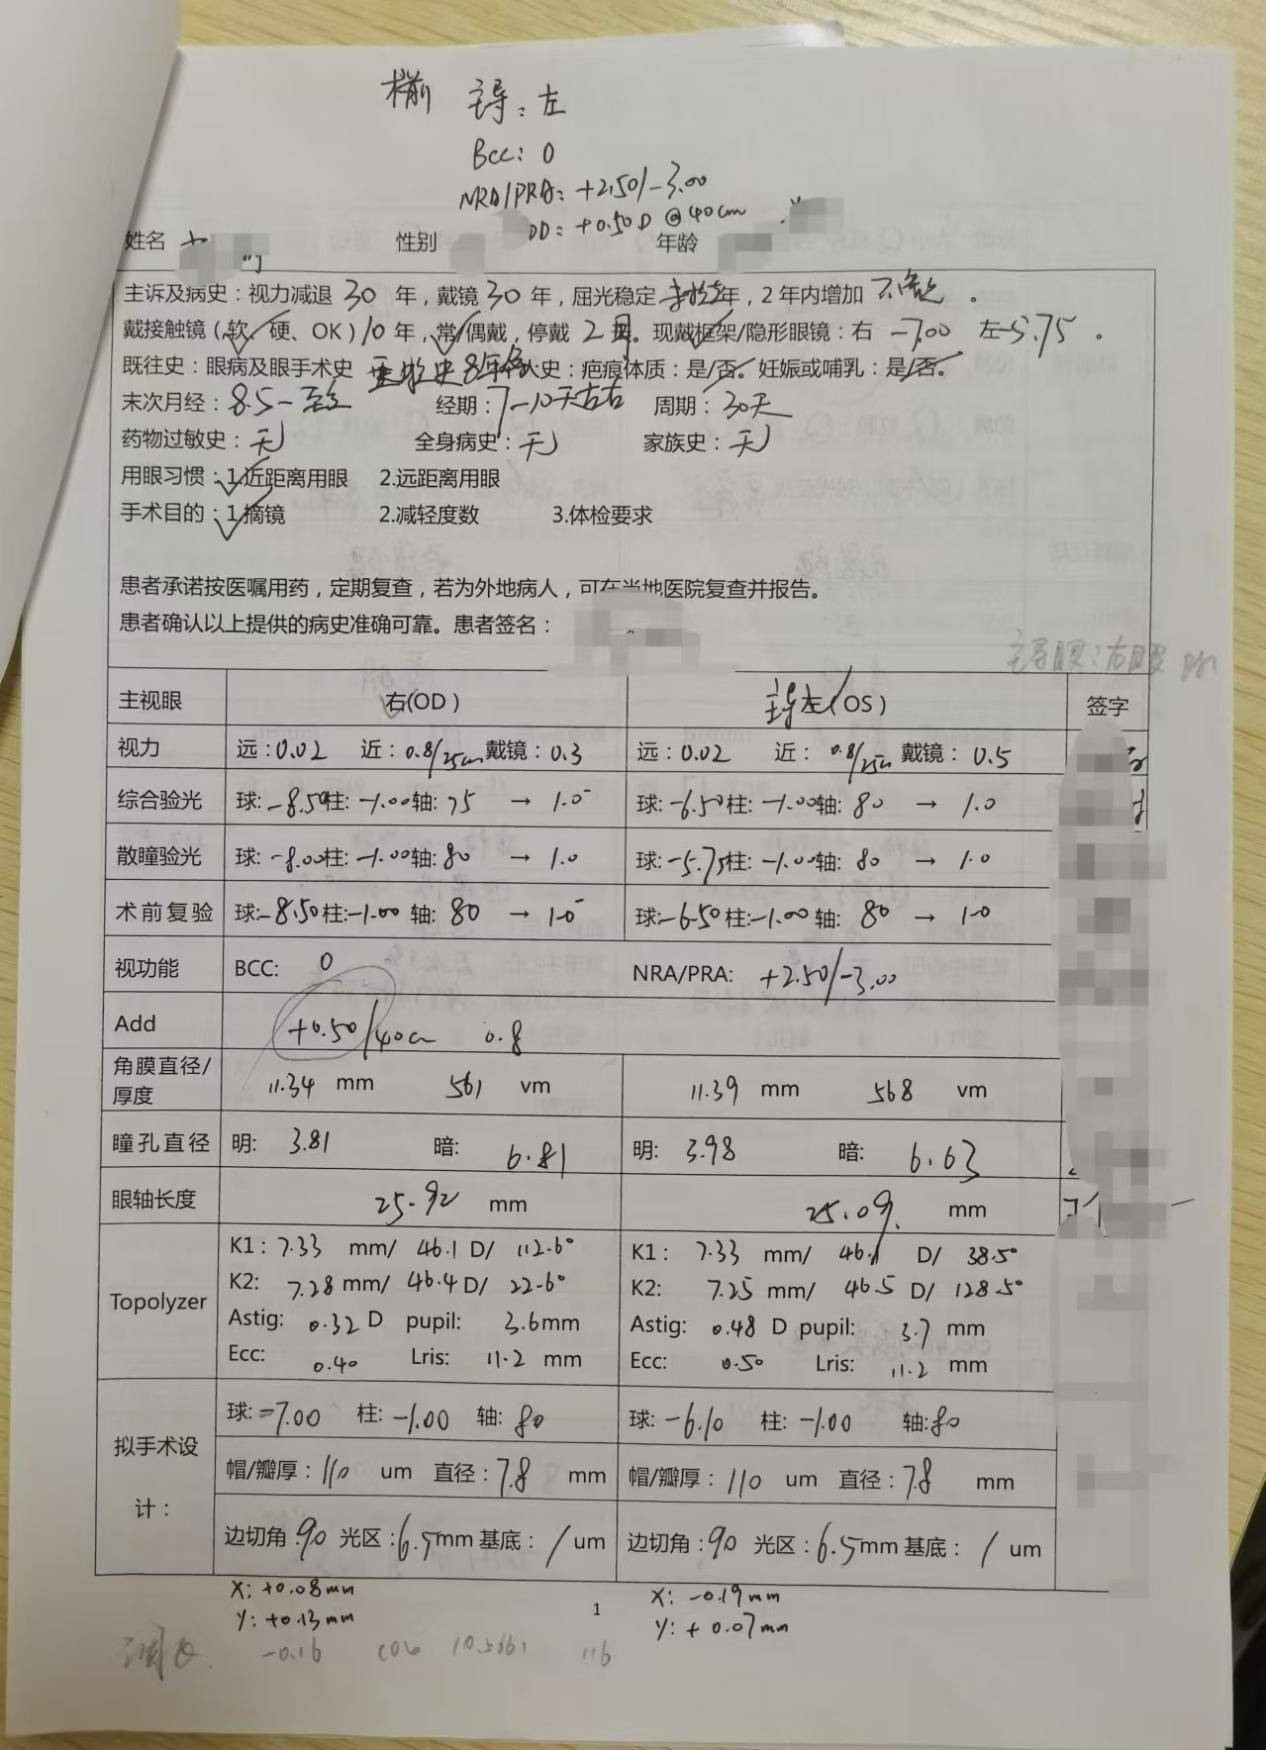 术前 主导：左
BCC：0
NRA/PRA：+2.50/-3.00
DD：+0.50D @40cm
姓名 性别 年龄
主诉及病史：视力减退 30 年，戴镜 30 年，屈光稳定 年，2 年内增加 不清 。
戴接触镜（软、硬、OK）10 年，常/偶戴，停戴 2 周。现戴框架/隐形眼镜：右 -7.00 左-5.75 。
既往史：眼病及眼手术史 史：疤痕体质：是/否。妊娠或哺乳：是/否。
末次月经：8.5-至今 经期：7-10天左右 周期：30天
药物过敏史：无 全身病史：无 家族史：无
用眼习惯：1.近距离用眼 2.远距离用眼
手术目的：1.摘镜 2.减轻度数 3.体检要求
患者承诺按医嘱用药，定期复查，若为外地病人，可在当地医院复查并报告。
患者确认以上提供的病史准确可靠。患者签名：
主导眼：右眼
主视眼 右(OD） 主导左(OS） 签字
视力 远：0.02 近：0.8/25cm 戴镜：0.3 远：0.02 近：0.8/25cm 戴镜：0.5
综合验光 球：-8.50柱：-1.00轴：75 → 1.0⁻ 球：-6.50柱：-1.00轴：80 → 1.0
散瞳验光 球：-8.00柱：-1.00轴：80 → 1.0 球：-5.75柱：-1.00轴：80 → 1.0
术前复验 球：-8.50柱：-1.00 轴：80 → 1.0⁻ 球：-6.50柱：-1.00轴：80 → 1.0
视功能 BCC: 0 NRA/PRA: +2.50/-3.00
Add +0.50/40cm 0.8
角膜直径/厚度 11.34 mm 561 vm 11.39 mm 568 vm
瞳孔直径 明: 3.81 暗: 6.81 明: 3.98 暗: 6.63
眼轴长度 25.92 mm 25.09 mm
Topolyzer
K1：7.33 mm/ 46.1 D/ 112.6° K1： 7.33 mm/ 46.1 D/ 38.5°
K2: 7.28 mm/ 46.4 D/ 22.6° K2: 7.25 mm/ 46.5 D/ 128.5°
Astig: 0.32 D pupil: 3.6mm Astig: 0.48 D pupil: 3.7 mm
Ecc: 0.40 Lris: 11.2 mm Ecc: 0.50 Lris: 11.2 mm
拟手术设计：
球：-7.00 柱：-1.00 轴：80 球：-6.10 柱：-1.00 轴：80
帽/瓣厚：110 um 直径：7.8 mm 帽/瓣厚：110 um 直径：7.8 mm
边切角：90 光区：6.5mm 基底： / um 边切角：90 光区：6.5mm 基底： / um
X：+0.08mm X：-0.19mm
Y：+0.13mm Y：+0.07mm
1
-0.16